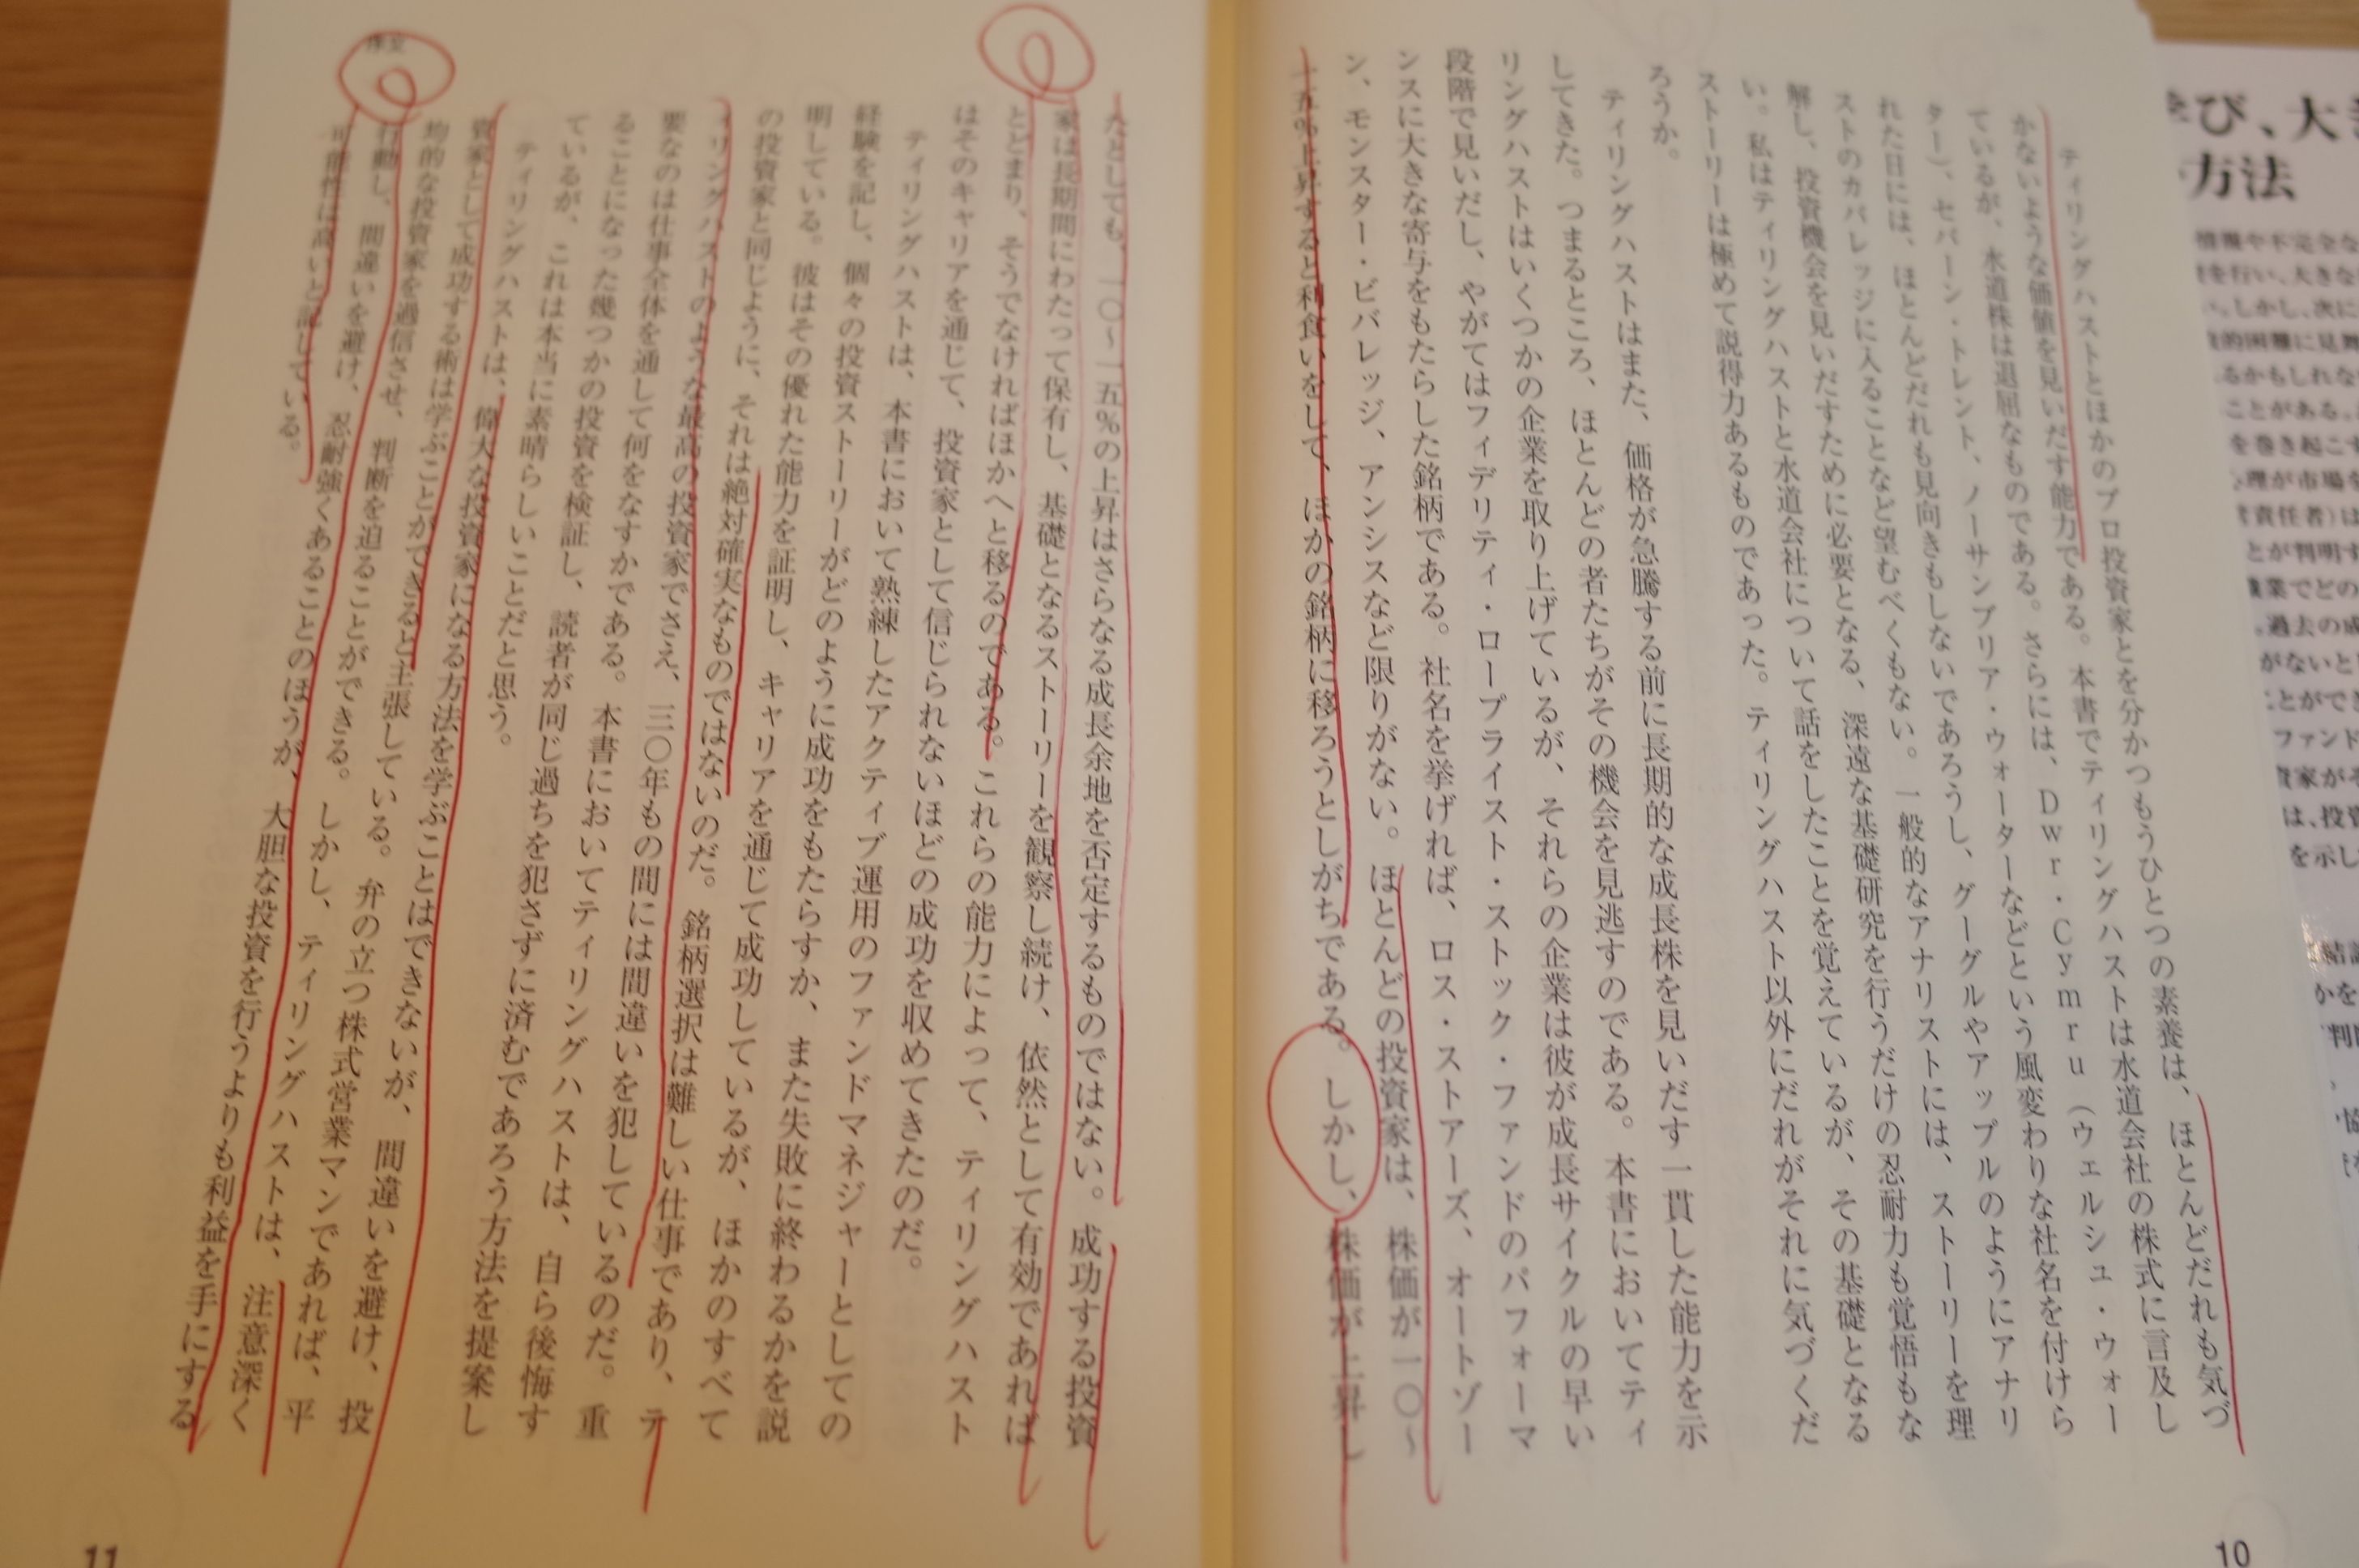 ティリングハストとほかのプロ投資家とを分かつもうひとつの素養は、ほとんどだれも気づ
かないような価値を見いだす能力である。本書でティリングハストは水道会社の株式に言及し
ているが、水道株は退屈なものである。さらには、Dwr・Cymru（ウェルシュ・ウォー
ター）、セバーン・トレント、ノーサンブリア・ウォーターなどという風変わりな社名を付けら
れた日には、ほとんどだれも見向きもしないであろうし、グーグルやアップルのようにアナリ
ストのカバレッジに入ることなど望むべくもない。一般的なアナリストには、ストーリーを理
解し、投資機会を見いだすために必要となる、深遠な基礎研究を行うだけの忍耐力も覚悟もな
い。私はティリングハストと水道会社について話をしたことを覚えているが、その基礎となる
ストーリーは極めて説得力あるものであった。ティリングハスト以外にだれがそれに気づくだ
ろうか。
ティリングハストはまた、価格が急騰する前に長期的な成長株を見いだす一貫した能力を示
してきた。つまるところ、ほとんどの者たちがその機会を見逃すのである。本書においてティ
リングハストはいくつかの企業を取り上げているが、それらの企業は彼が成長サイクルの早い
段階で見いだし、やがてはフィデリティ・ロープライスト・ストック・ファンドのパフォーマ
ンスに大きな寄与をもたらした銘柄である。社名を挙げれば、ロス・ストアーズ、オートゾー
ン、モンスター・ビバレッジ、アンシスなど限りがない。ほとんどの投資家は、株価が一〇〜
一五％上昇すると利食いをして、ほかの銘柄に移ろうとしがちである。しかし、株価が上昇し
10
たとしても、一〇〜一五％の上昇はさらなる成長余地を否定するものではない。成功する投資
家は長期間にわたって保有し、基礎となるストーリーを観察し続け、依然として有効であれば
とどまり、そうでなければほかへと移るのである。これらの能力によって、ティリングハスト
はそのキャリアを通じて、投資家として信じられないほどの成功を収めてきたのだ。
ティリングハストは、本書において熟練したアクティブ運用のファンドマネジャーとしての
経験を記し、個々の投資ストーリーがどのように成功をもたらすか、また失敗に終わるかを説
明している。彼はその優れた能力を証明し、キャリアを通じて成功しているが、ほかのすべて
の投資家と同じように、それは絶対確実なものではないのだ。銘柄選択は難しい仕事であり、テ
ィリングハストのような最高の投資家でさえ、三〇年もの間には間違いを犯しているのだ。重
要なのは仕事全体を通して何をなすかである。本書においてティリングハストは、自ら後悔す
ることになった幾つかの投資を検証し、読者が同じ過ちを犯さずに済むであろう方法を提案し
ているが、これは本当に素晴らしいことだと思う。
ティリングハストは、偉大な投資家になる方法を学ぶことはできないが、間違いを避け、投
資家として成功する術は学ぶことができると主張している。弁の立つ株式営業マンであれば、平
均的な投資家を過信させ、判断を迫ることができる。しかし、ティリングハストは、注意深く
行動し、間違いを避け、忍耐強くあることのほうが、大胆な投資を行うよりも利益を手にする
可能性は高いと記している。
序文
11
び、大
方法